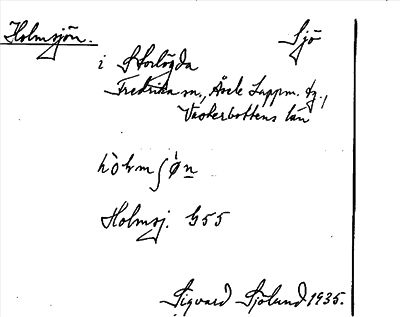 Holmsjön. Sjö
i Storlögda
Fredrika sn., Åsele Lappm. tg.,
Västerbottens län
Holmsj. G55
Sigvard Sjölund 1935.